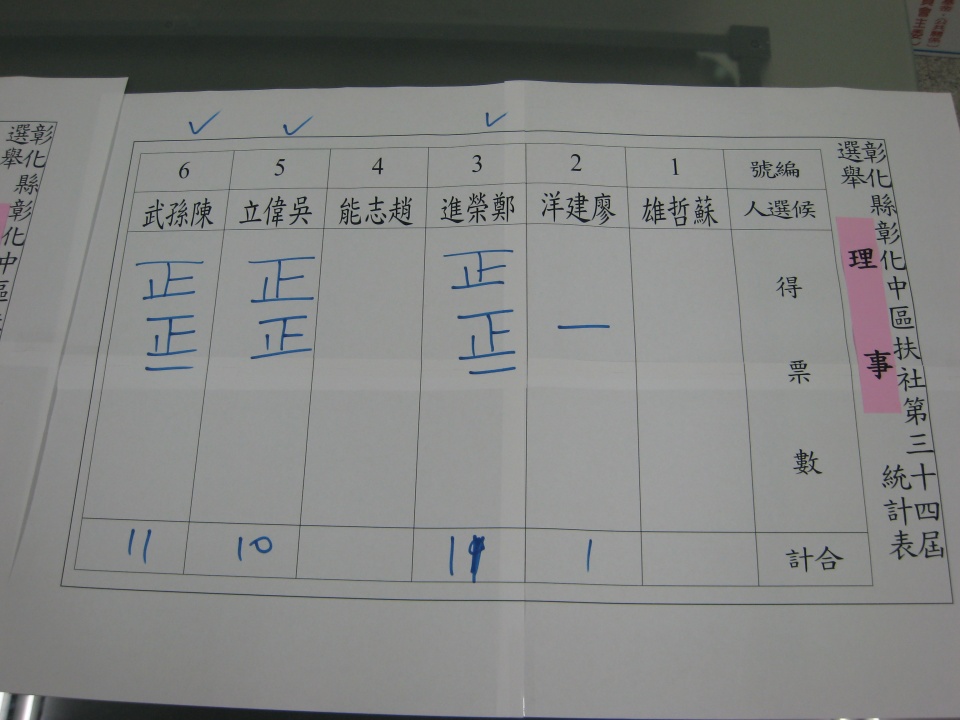 彰化縣彰化中區扶社第三十四屆
選舉 理事 統計表
編號 1 2 3 4 5 6
候選人 蘇哲雄 廖建洋 鄭榮進 趙志能 吳偉立 陳孫武
得票數
一
正正一
正正
正正一
合計 1 11 10 11
彰化縣彰化中區
選舉